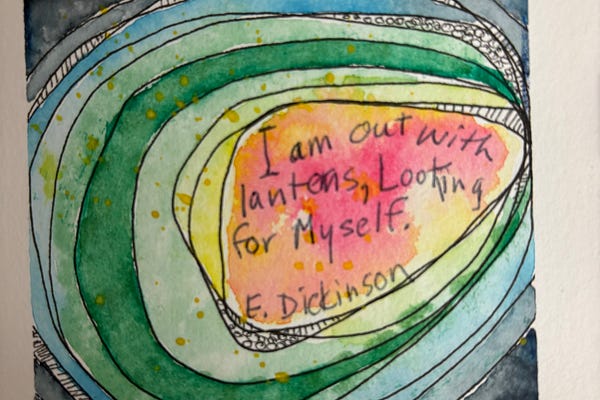 I am out with
lantens, Looking
for Myself.
E. Dickinson